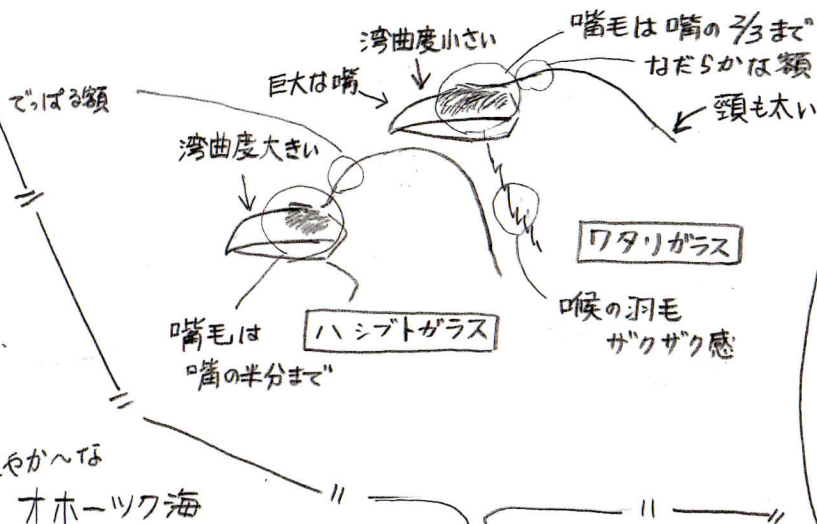 湾曲度小さい
嘴毛は嘴の2/3まで
なだらかな額
巨大な嘴
頸も太い
でっぱる額
湾曲度大きい
ワタリガラス
喉の羽毛
ザクザク感
嘴毛は
嘴の半分まで
ハシブトガラス
やか〜な
オホーツク海